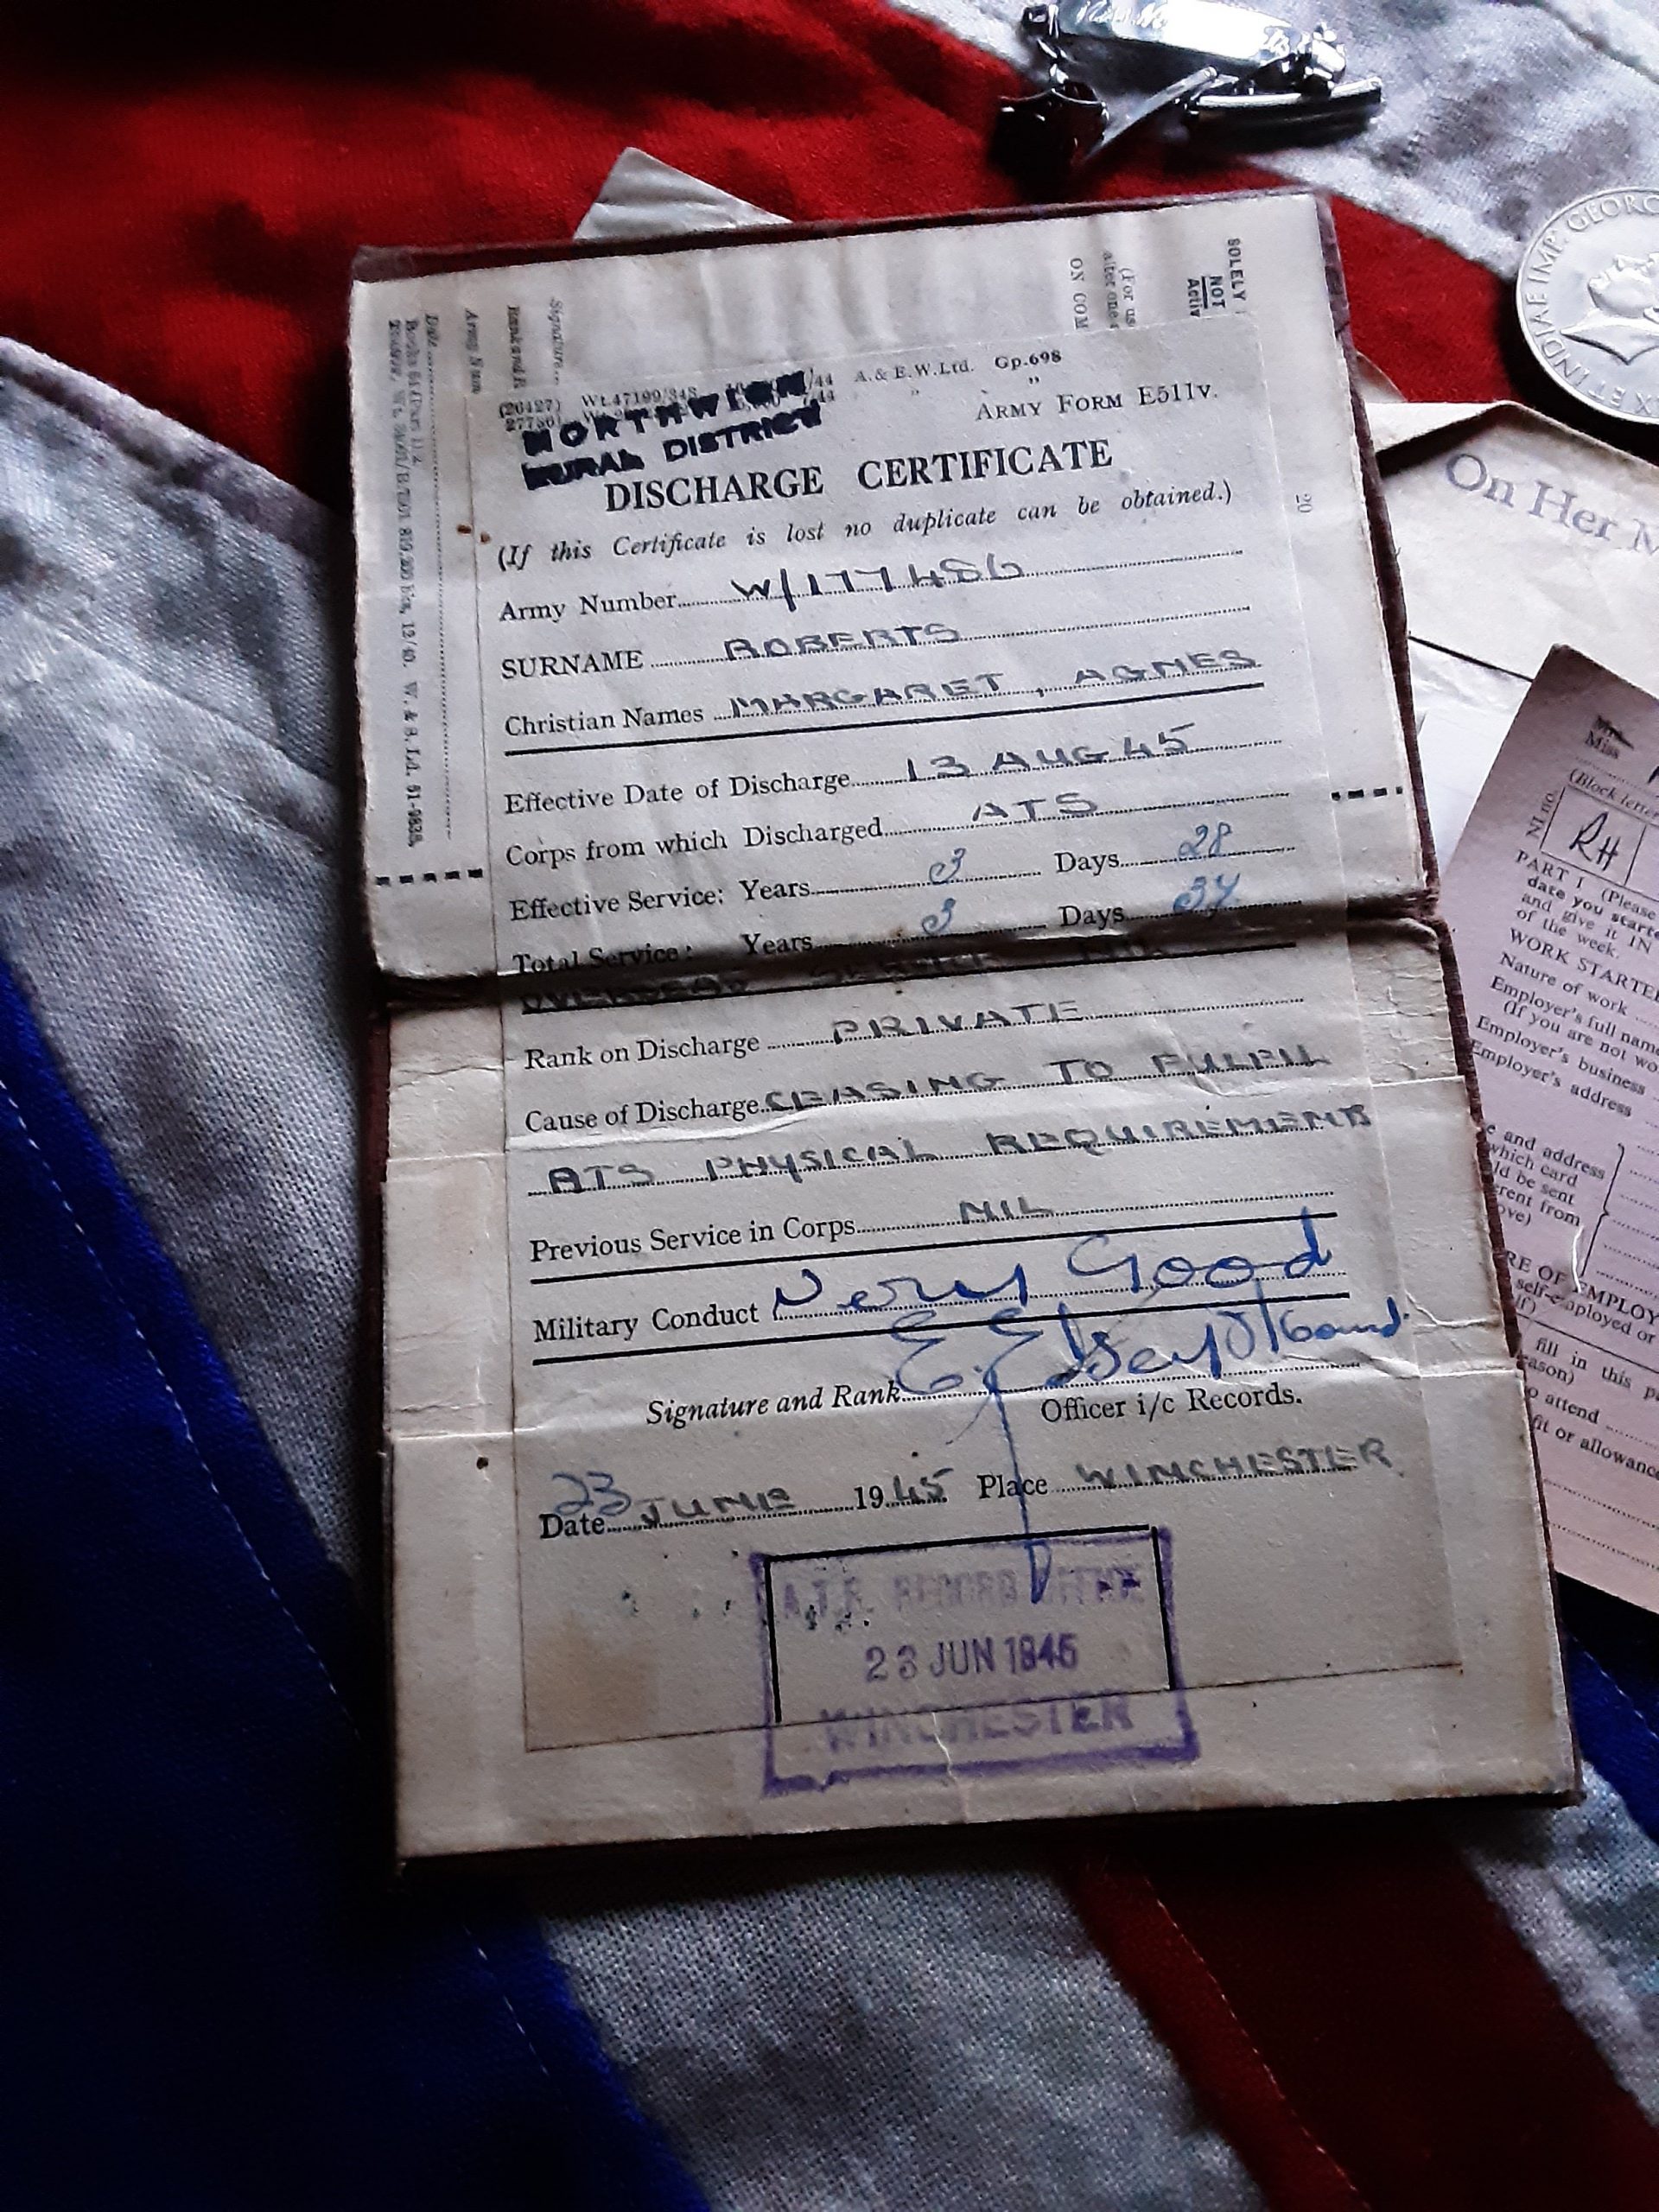 SOLELY
NOT
Activ
(For us
after one
ON COM
Signature
Army Num
Date
W. & S. Ltd. 51-9838.
(26427) Wt.47199/348 /44 A. & E.W.Ltd. Gp.698
27750 /44 " "
NORTHWICH
RURAL DISTRICT
ARMY FORM E511v.
DISCHARGE CERTIFICATE
(If this Certificate is lost no duplicate can be obtained.)
20
Army Number W/177486
SURNAME ROBERTS
Christian Names MARGARET, AGNES
Effective Date of Discharge 13 AUG 45
Corps from which Discharged ATS
Effective Service: Years 3 Days 28
Total Service: Years 3 Days
OVERSEAS SERVICE NIL
Rank on Discharge PRIVATE
Cause of Discharge CEASING TO FULFIL
ATS PHYSICAL REQUIREMENTS
Previous Service in Corps NIL
Military Conduct Very Good
Signature and Rank
Officer i/c Records.
Date 23 JUNE 1945 Place WINCHESTER
A.T.S. RECORD OFFICE
23 JUN 1945
WINCHESTER
ET IND IMP: GEOR
On Her M
Miss
(Block lette
NI no.
RH
PART I (Please
date you starte
and give it IN
of the week.
WORK STARTE
Nature of work
Employer's full nam
(If you are not wo
Employer's business
Employer's address
e and address
which card
ld be sent
erent from
ove)
RE OF EMPLOY
self-employed or
if)
fill in this p
ason)
o attend
fit or allowanc